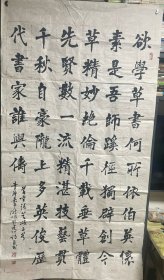 欲學草書何所依伯英懷
素是吾師蹊徑獨辟創今
草精妙絶倫千載垂草體
先賢數一流精湛技藝貫
千秋自豪隴上多英俊歷
代書家誰與儔